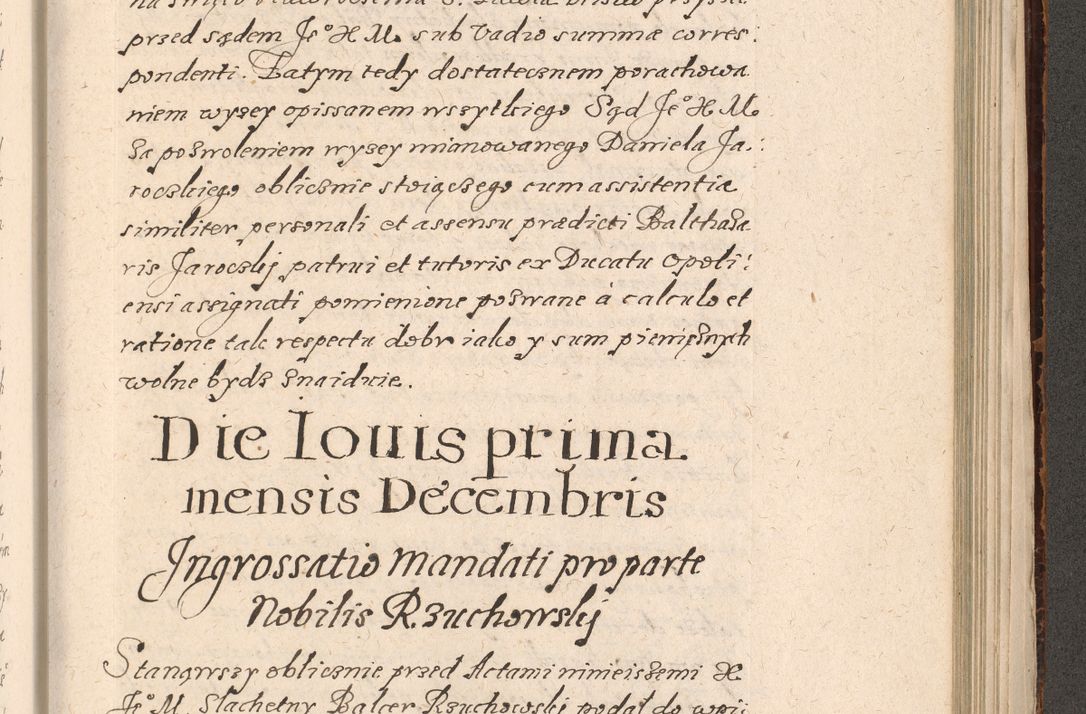 przed sądem Je° X M. sub vadio summæ corres:
pondenti. Zatym tedy dostatecznem porachowa
niem wyzey opissanem wszytkiego Sąd Je° X M.
za pozwoleniem wyzey mianowanego Daniela Ja.:
roczkiego oblicznie stoiączego cum assistentia
similiter personali et assensu prædicti Balthaza
ris Jaroczkij patrui et tutoris ex Ducatu Opoli:
ensi assignati pomienione pozwane à calculo et
ratione tak respectu dobr iako y sum pieniężnych
wolne bydz znaiduie.
Die Iouis prima
mensis Decembris
Ingrossatio Mandati pro parte
Nobilis Rzuchowskij
Stanąwszy oblicznie przed Actami ninieiszemi X
Je° M. Slachetny Balcer Rzuchowski podał do wpi: